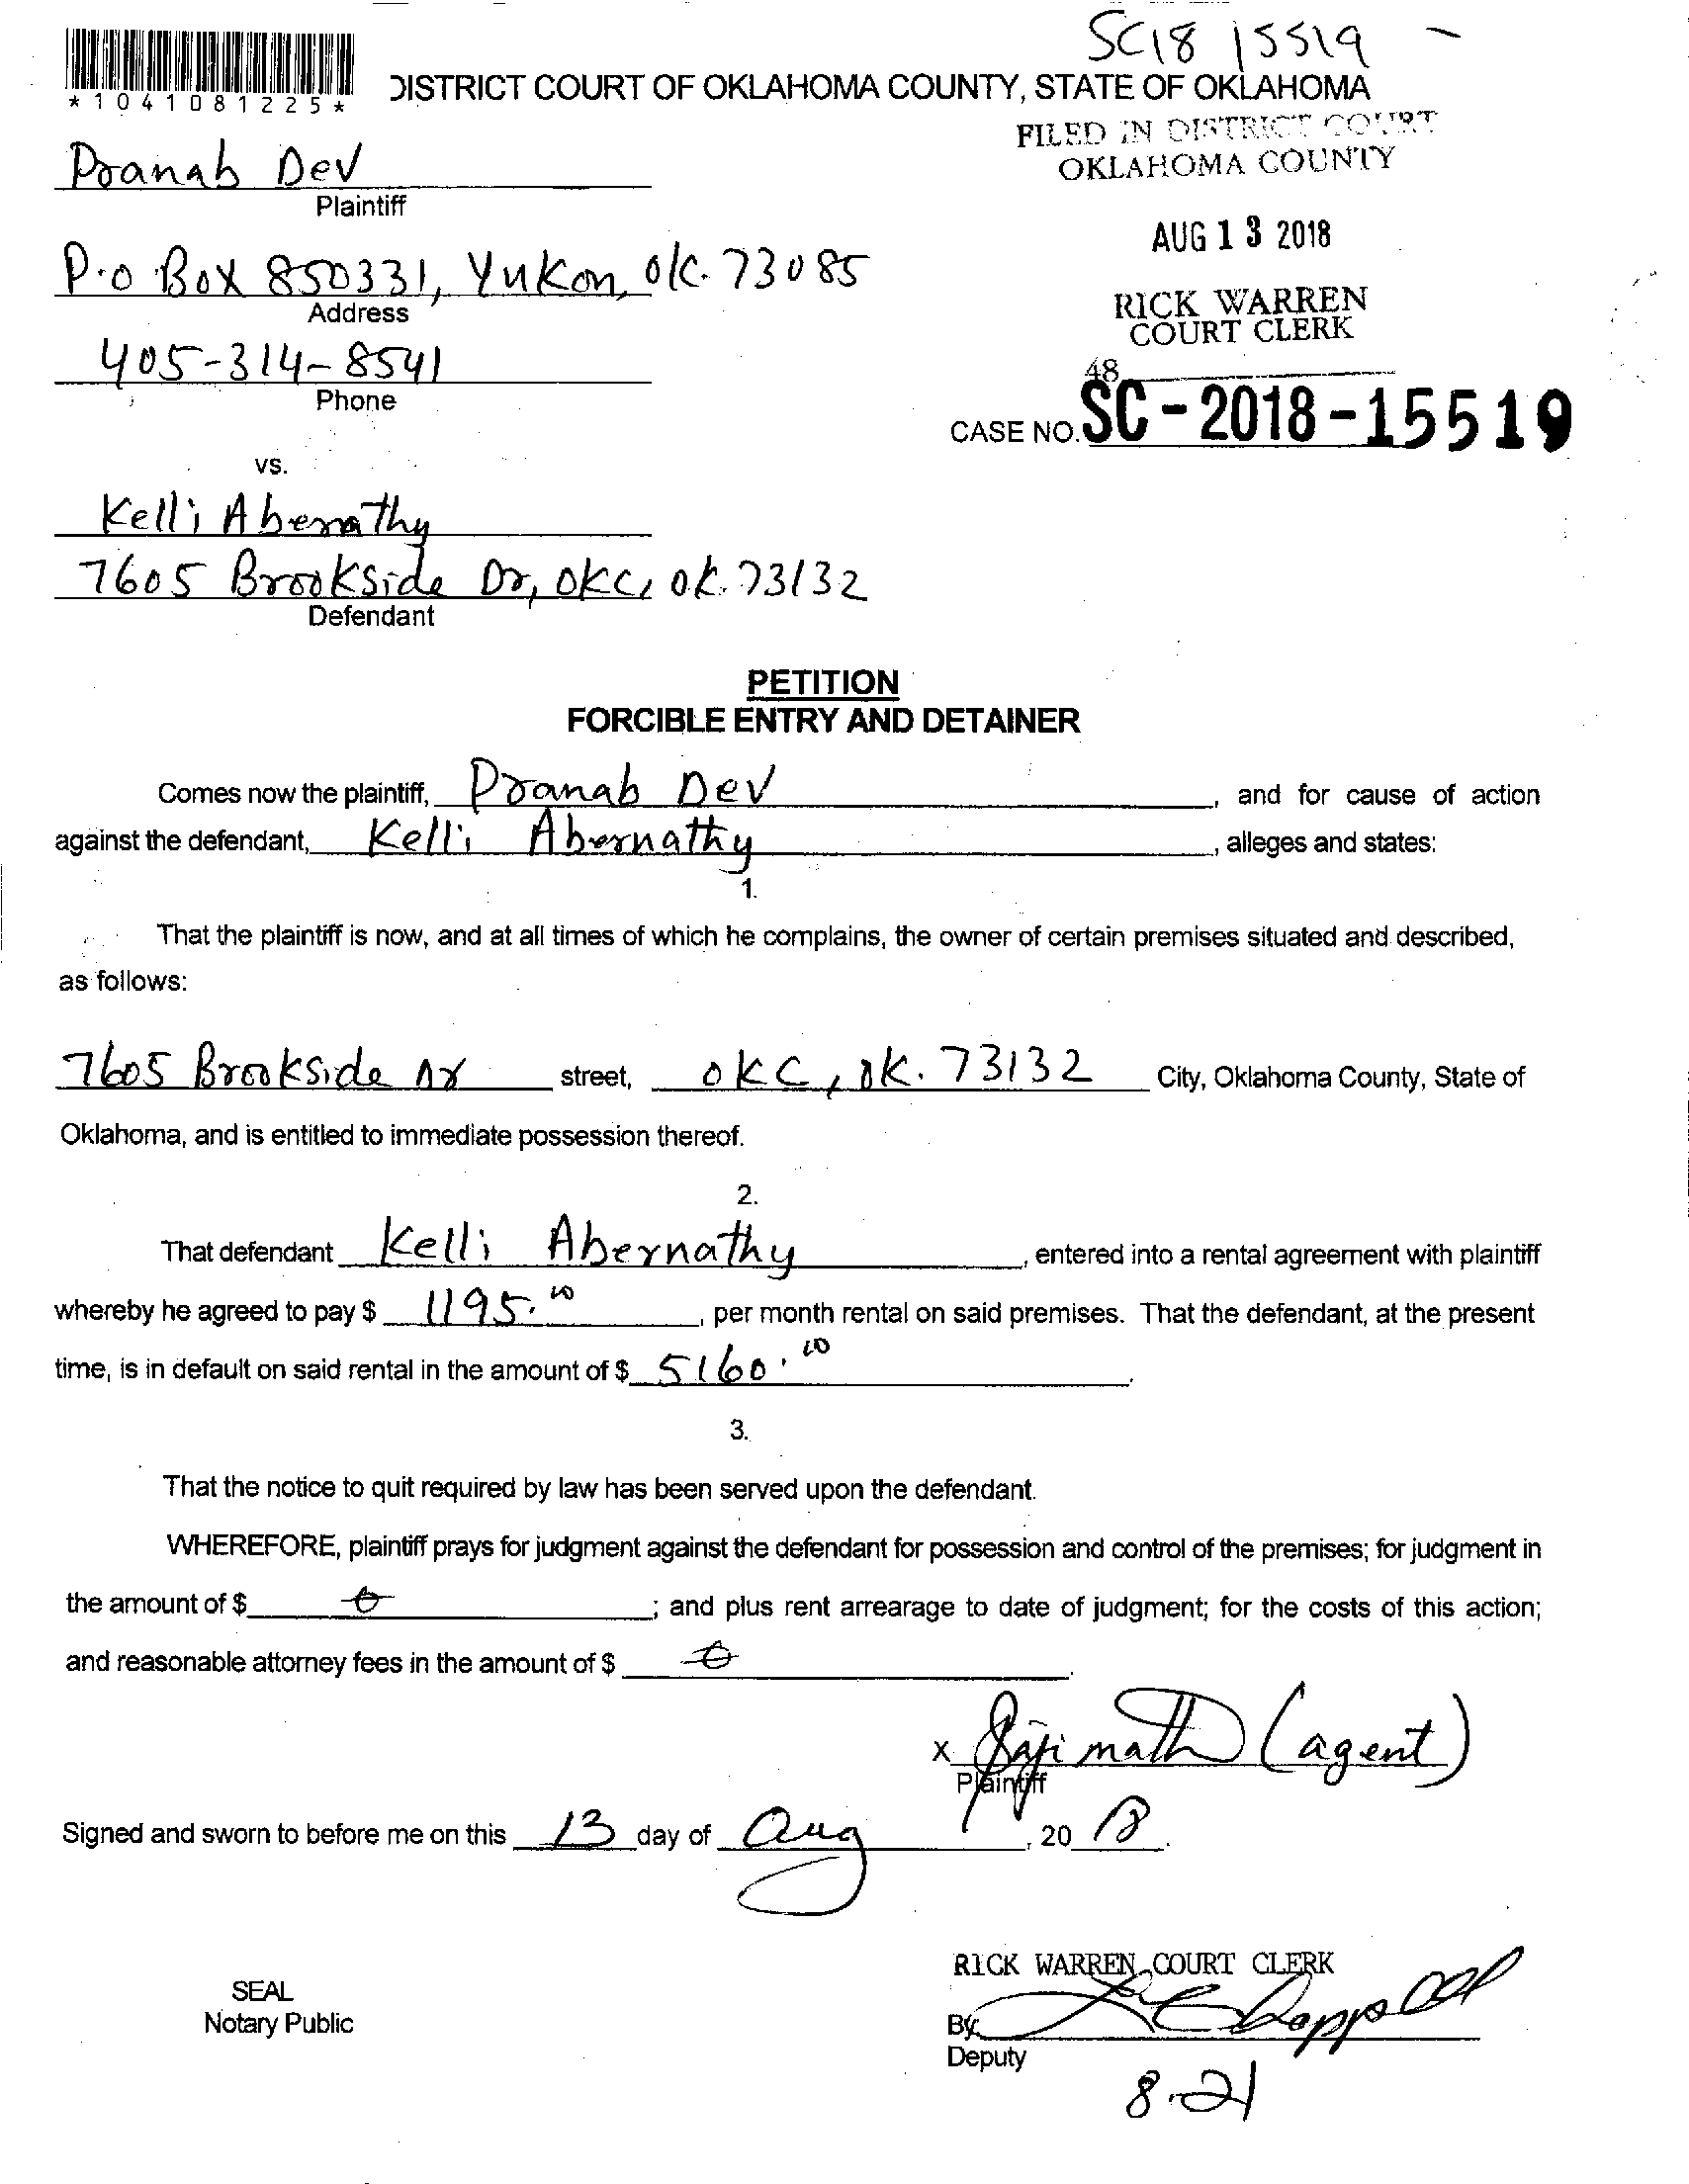 SC18 15519 -
*1041081225*
DISTRICT COURT OF OKLAHOMA COUNTY, STATE OF OKLAHOMA
FILED IN DISTRICT COURT
OKLAHOMA COUNTY
Pranab Dev
Plaintiff
AUG 13 2018
P.O Box 850331, Yukon, OK. 73085
Address
RICK WARREN
COURT CLERK
405-314-8541
Phone
48
CASE NO. SC-2018-15519
vs.
Kelli Abernathy
7605 Brookside Dr, OKC, OK. 73132
Defendant
PETITION
FORCIBLE ENTRY AND DETAINER
Comes now the plaintiff, Pranab Dev, and for cause of action
against the defendant, Kelli Abernathy, alleges and states:
1.
That the plaintiff is now, and at all times of which he complains, the owner of certain premises situated and described,
as follows:
7605 Brookside Dr street, OKC, OK. 73132 City, Oklahoma County, State of
Oklahoma, and is entitled to immediate possession thereof.
2.
That defendant Kelli Abernathy, entered into a rental agreement with plaintiff
whereby he agreed to pay $ 1195.00, per month rental on said premises. That the defendant, at the present
time, is in default on said rental in the amount of $ 5160.00.
3.
That the notice to quit required by law has been served upon the defendant.
WHEREFORE, plaintiff prays for judgment against the defendant for possession and control of the premises; for judgment in
the amount of $ 0; and plus rent arrearage to date of judgment; for the costs of this action;
and reasonable attorney fees in the amount of $ 0.
x (agent)
Plaintiff
Signed and sworn to before me on this 13 day of Aug, 20 18.
RICK WARREN, COURT CLERK
SEAL
Notary Public
By
Deputy
8-21